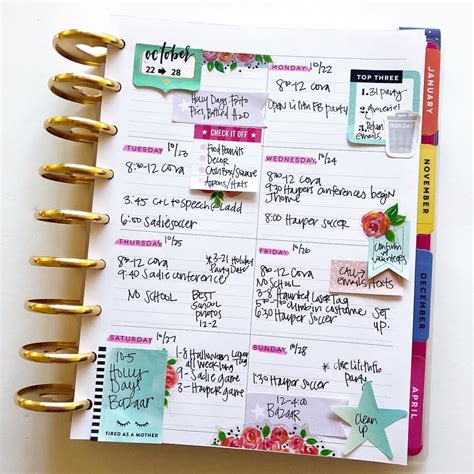 october
22 → 28
Holly Days Photo
MONDAY 10/22
8:30-12 Cora
Open Lilith FB party
TOP THREE
1. 31 party
2. groceries
3. Return
emails
TRASH DAY
CHECK IT OFF
Food Permits
Decor
Cash Box/Square
Aprons/Hats
TUESDAY 10/23
8:30-12 Cora
3:45 C+L to Speech@Ladd
6:00 Sadie soccer
WEDNESDAY 10/24
8:30-12 Cora
9:30 Harpers conferences begin
1 home
8:00 Harper soccer
THURSDAY 10/25
8:30-12 Cora
9:40 Sadie conference
NO SCHOOL
*3-21 Holiday
Party Date
BEST
photos
10/2-2
FRIDAY 10/26
8:30-12 Cora
NO School
3-8 Haunted Laser Tag
5:00 dmins costume
6:30 Harper Soccer
confirm
volunteers
CALL +
emails/texts
SET
UP.
SATURDAY 10/27
10-5
Holly
Days
Bazaar
TIRED AS A MOTHER
1-8 Halloween Laser
Tag
all week long
9 - Sadie game
3 - Harper game
SUNDAY 10/28
*close lilith fb
Party
1:30 Harper soccer
12-4:00
BAZAAR
clean
up
JANUARY
NOVEMBER
DECEMBER
APRIL